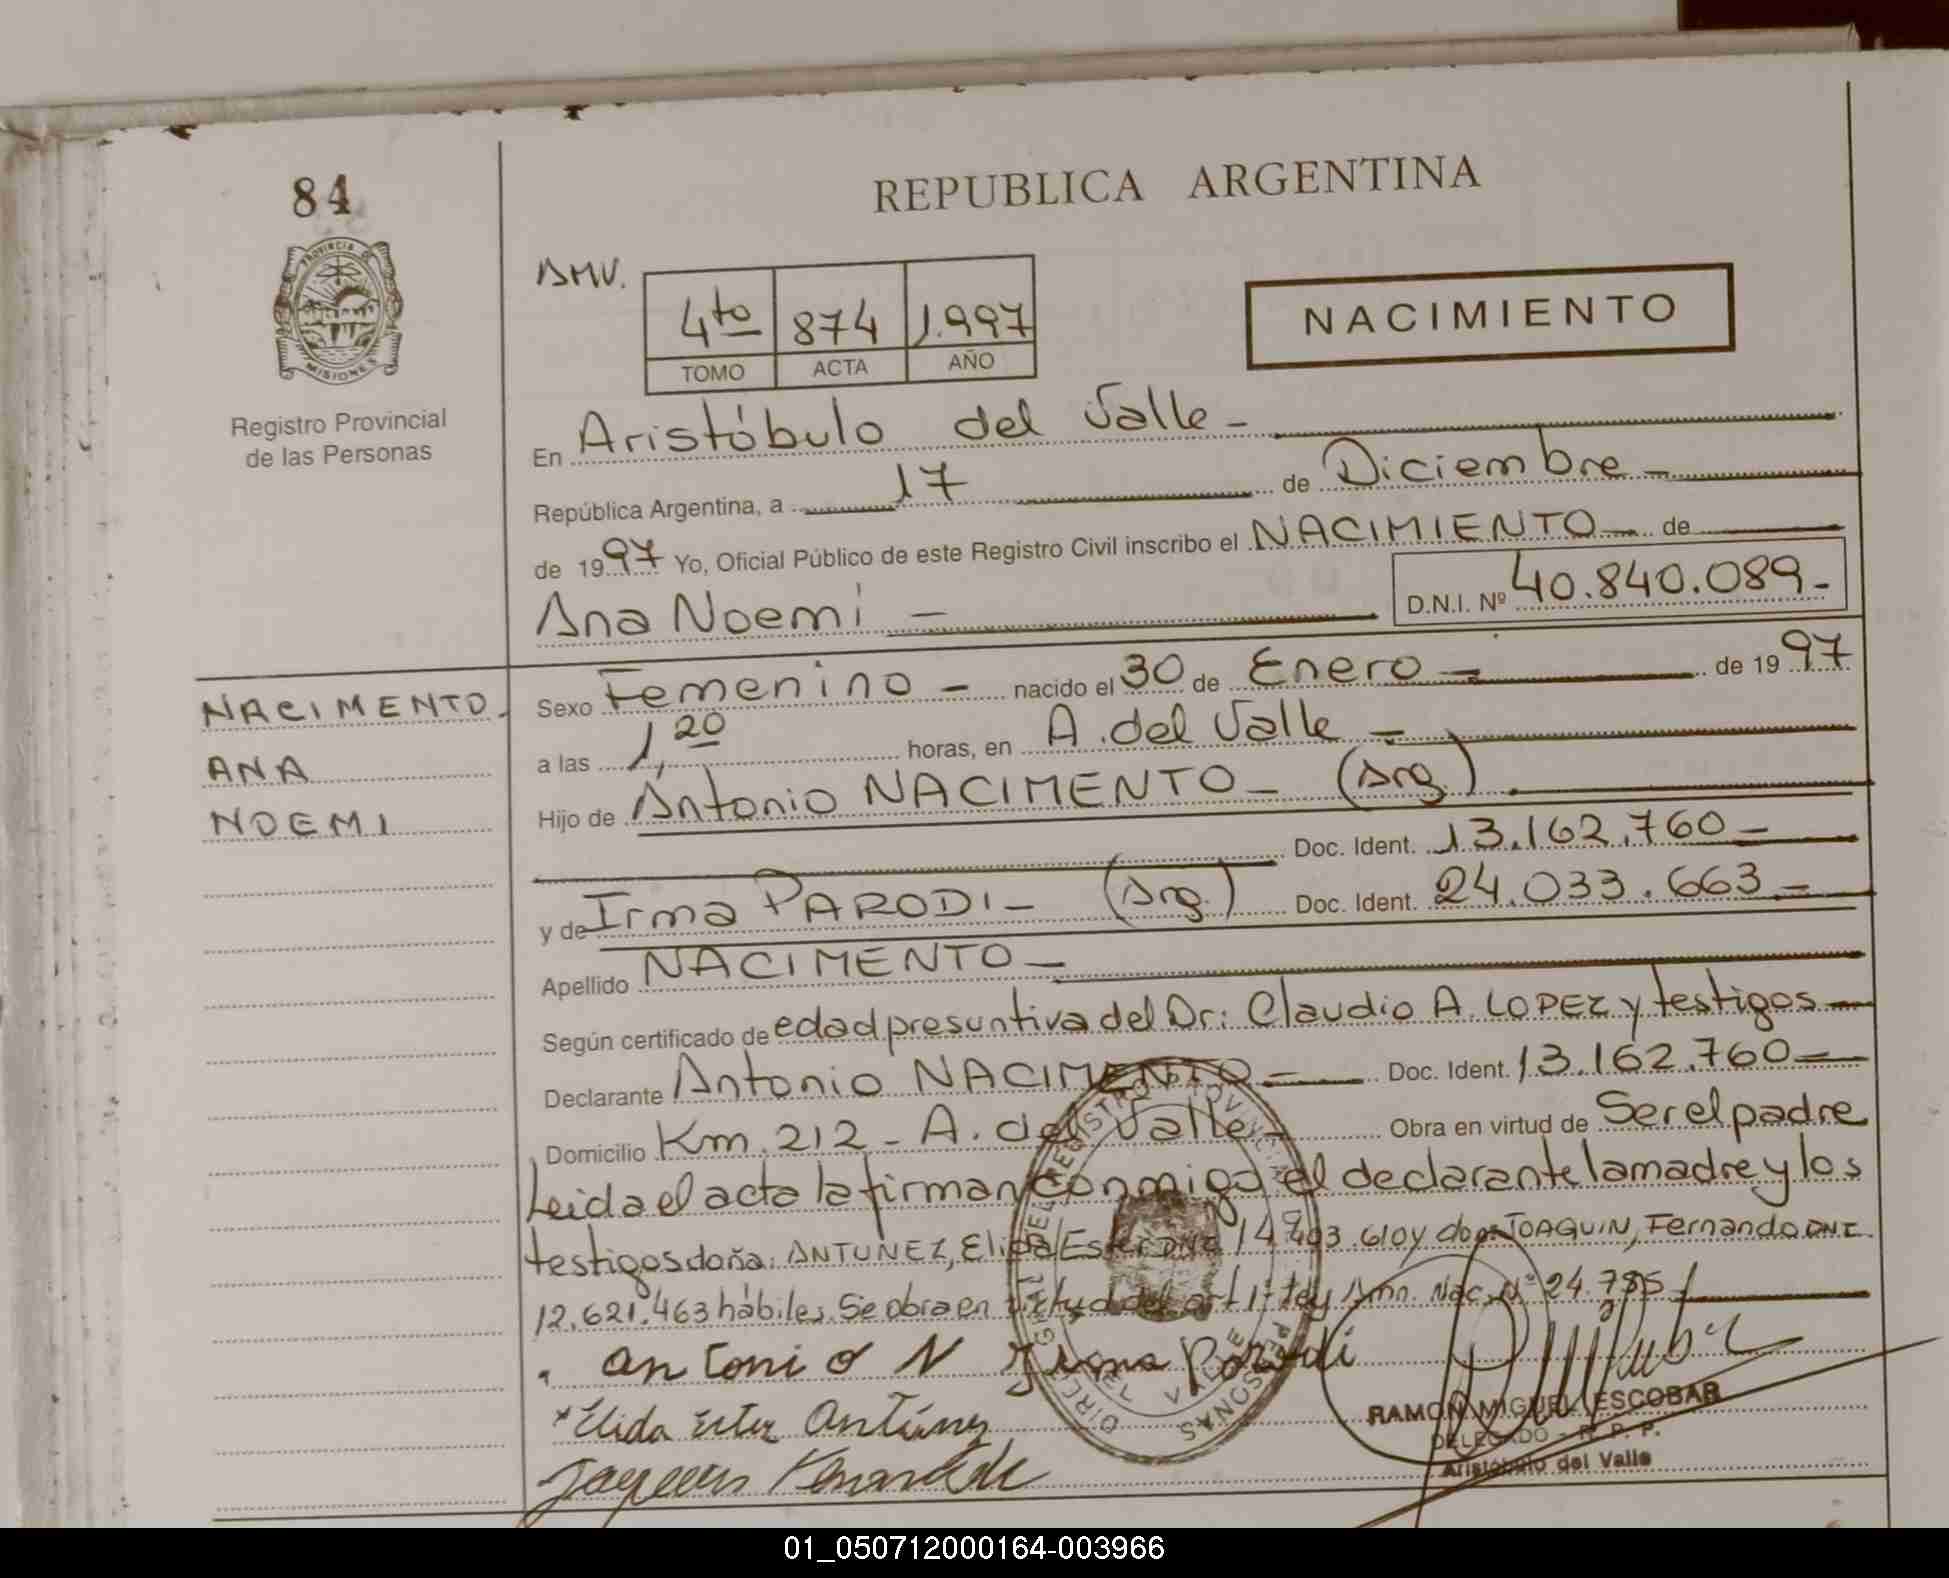 84
REPUBLICA ARGENTINA
PROVINCIA DE
MISIONES
Registro Provincial
de las Personas
AMV.
4to 874 1.997
TOMO ACTA AÑO
NACIMIENTO
En Aristóbulo del Valle -
República Argentina, a 17 de Diciembre -
de 1997 Yo, Oficial Público de este Registro Civil inscribo el NACIMIENTO de
Ana Noemi - D.N.I. Nº 40.840.089-
NACIMENTO
ANA
NOEMI
Sexo Femenino - nacido el 30 de Enero - de 1997
a las 1,20 horas, en A. del Valle -
Hijo de Antonio NACIMENTO - (Arg.)
Doc. Ident. 13.162.760 -
y de Irma PARODI - (Arg.) Doc. Ident. 24.033.663 -
Apellido NACIMENTO -
Según certificado de edad presuntiva del Dr: Claudio A. LOPEZ y testigos -
Declarante Antonio NACIMENTO - Doc. Ident. 13.162.760 -
Domicilio Km. 212 - A. del Valle - Obra en virtud de Ser el padre
Leida el acta la firman conmigo el declarante la madre y los
testigos doña: ANTUNEZ, Elida Ester DNI 14.403.610 y don JOAQUIN, Fernando DNI.
12.621.463 hábiles. Se obra en virtud del art 1º Ley Nac. Nº 24.785
Antonio N Irma Parodi
Elida Ester Antúnez
RAMON MIGUEL ESCOBAR
DELEGADO - R. P. P.
Aristóbulo del Valle
01_050712000164-003966